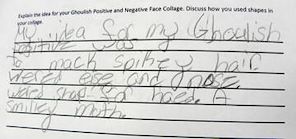 Explain the idea for your Ghoulish Positive and Negative Face Collage. Discuss how you used shapes in
your collage.
My idea for my Ghoulish
positive was
to mack spikey hair
wered eise and nose
wered shap for haed. A
smiley moth.